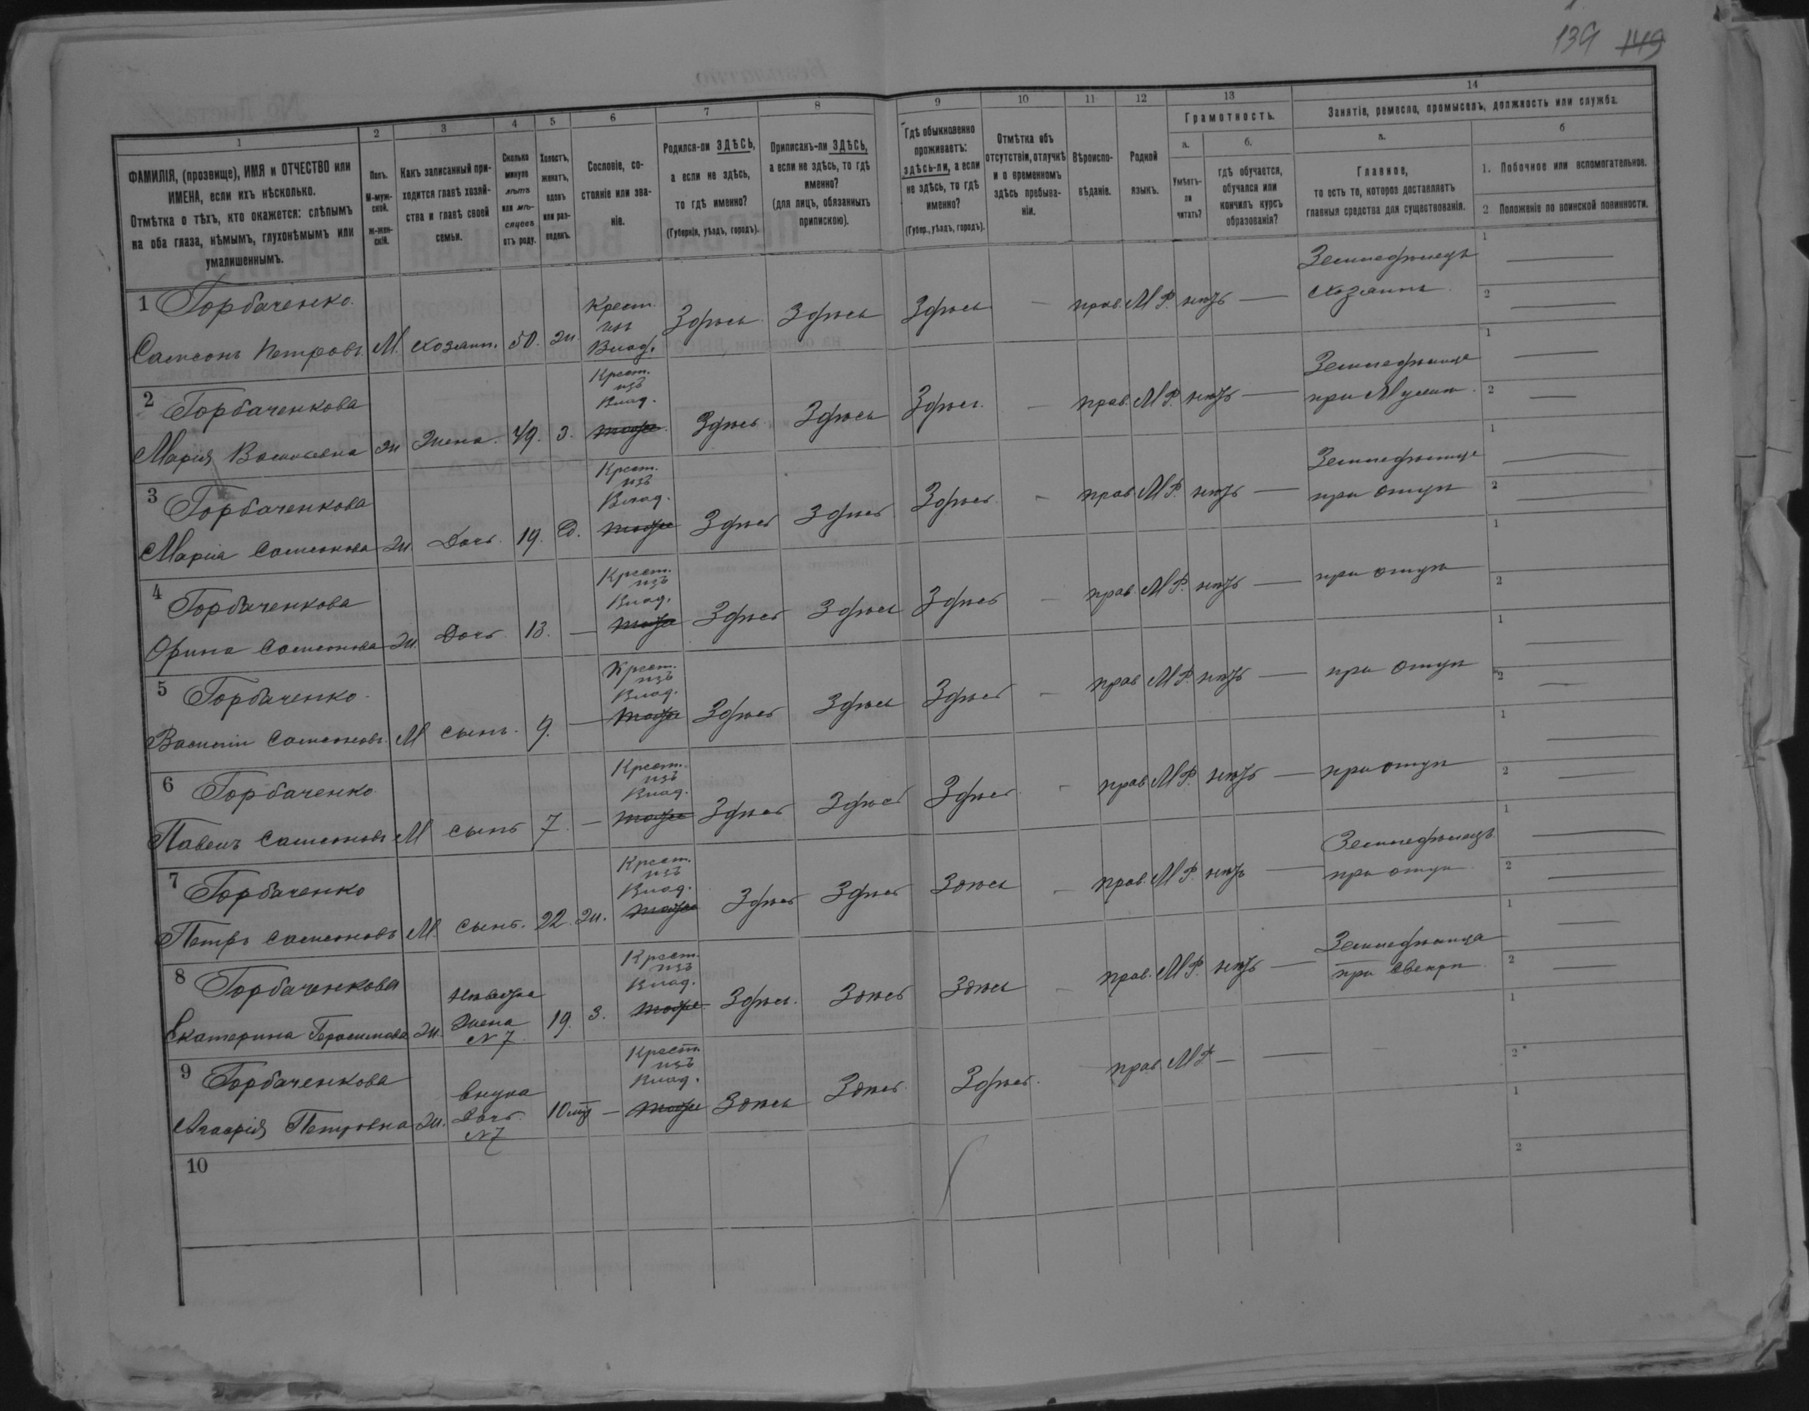 139 149
1 2 3 4 5 6 7 8 9 10 11 12 13 14
ФАМИЛІЯ, (прозвище), ИМЯ и ОТЧЕСТВО или ИМЕНА, если ихъ нѣсколько.
Отмѣтка о тѣхъ, кто окажется: слѣпымъ на оба глаза, нѣмымъ, глухонѣмымъ или умалишеннымъ.
Полъ.
М-мужской.
Ж-женскій.
Какъ записанный приходится главѣ хозяйства и главѣ своей семьи.
Сколько минуло лѣтъ или мѣсяцевъ отъ роду.
Холостъ, женатъ, вдовъ или разведенъ.
Сословіе, состояніе или званіе.
Родился-ли ЗДѢСЬ, а если не здѣсь, то гдѣ именно?
(Губернія, уѣздъ, городъ).
Приписанъ-ли ЗДѢСЬ, а если не здѣсь, то гдѣ именно?
(для лицъ, обязанныхъ припискою).
Гдѣ обыкновенно проживаетъ: здѣсь-ли, а если не здѣсь, то гдѣ именно?
(Губер., уѣздъ, городъ).
Отмѣтка объ отсутствіи, отлучкѣ и о временномъ здѣсь пребываніи.
Вѣроисповѣданіе.
Родной языкъ.
Грамотность.
а.
Умѣетъ-ли читать?
б.
гдѣ обучается, обучался или кончилъ курсъ образованія?
Занятіе, ремесло, промыселъ, должность или служба.
а.
Главное,
то есть то, которое доставляетъ главныя средства для существованія.
б
1. Побочное или вспомогательное.
2 Положеніе по воинской повинности.
1 Горбаченко
Самсонъ Петровъ М. хозяин. 50. ж Крест. изъ Влад. Здѣсь Здѣсь Здѣсь — прав. М Р. нѣтъ — Земледѣлецъ хозяинъ 1 — 2 —
2 Горбаченкова
Марія Васильевна ж Жена. 49. з. Крест. изъ Влад. тоже Здѣсь Здѣсь Здѣсь. — прав. М Р. нѣтъ — Земледѣлица при Мужѣ 1 — 2 —
3 Горбаченкова
Марія Самсонова ж Дочь 19. Д. Крест. изъ Влад. тоже Здѣсь Здѣсь Здѣсь — прав. М Р. нѣтъ — Земледѣлица при отцѣ 1 — 2 —
4 Горбаченкова
Орина Самсонова ж Дочь 13. — Крест. изъ Влад. тоже Здѣсь Здѣсь Здѣсь — прав М Р. нѣтъ — при отцѣ 1 2
5 Горбаченко
Василій Самсоновъ М сынъ. 9. — Крест. изъ Влад. тоже Здѣсь Здѣсь Здѣсь — прав М Р. нѣтъ — при отцѣ 1 — 2 —
6 Горбаченко
Павелъ Самсоновъ М сынъ 7 — Крест. изъ Влад. тоже Здѣсь Здѣсь Здѣсь — прав М Р. нѣтъ — при отцѣ 1 — 2 —
7 Горбаченко
Петръ Самсоновъ М. сынъ. 22. ж. Крест. изъ Влад. тоже Здѣсь Здѣсь Здѣсь — прав. М Р. нѣтъ — Земледѣлецъ при отцѣ 1 — 2 —
8 Горбаченкова
Екатерина Герасимова ж. невѣстка Жена N 7 19. з. Крест. изъ Влад. тоже Здѣсь. Здѣсь Здѣсь — прав. М Р. нѣтъ — Земледѣлица при свекрѣ 1 — 2 —
9 Горбаченкова
Петровна ж. внука Дочь N 7 10 — Крест. изъ Влад. тоже Здѣсь Здѣсь Здѣсь прав М Р — — 1 2
10 1 2